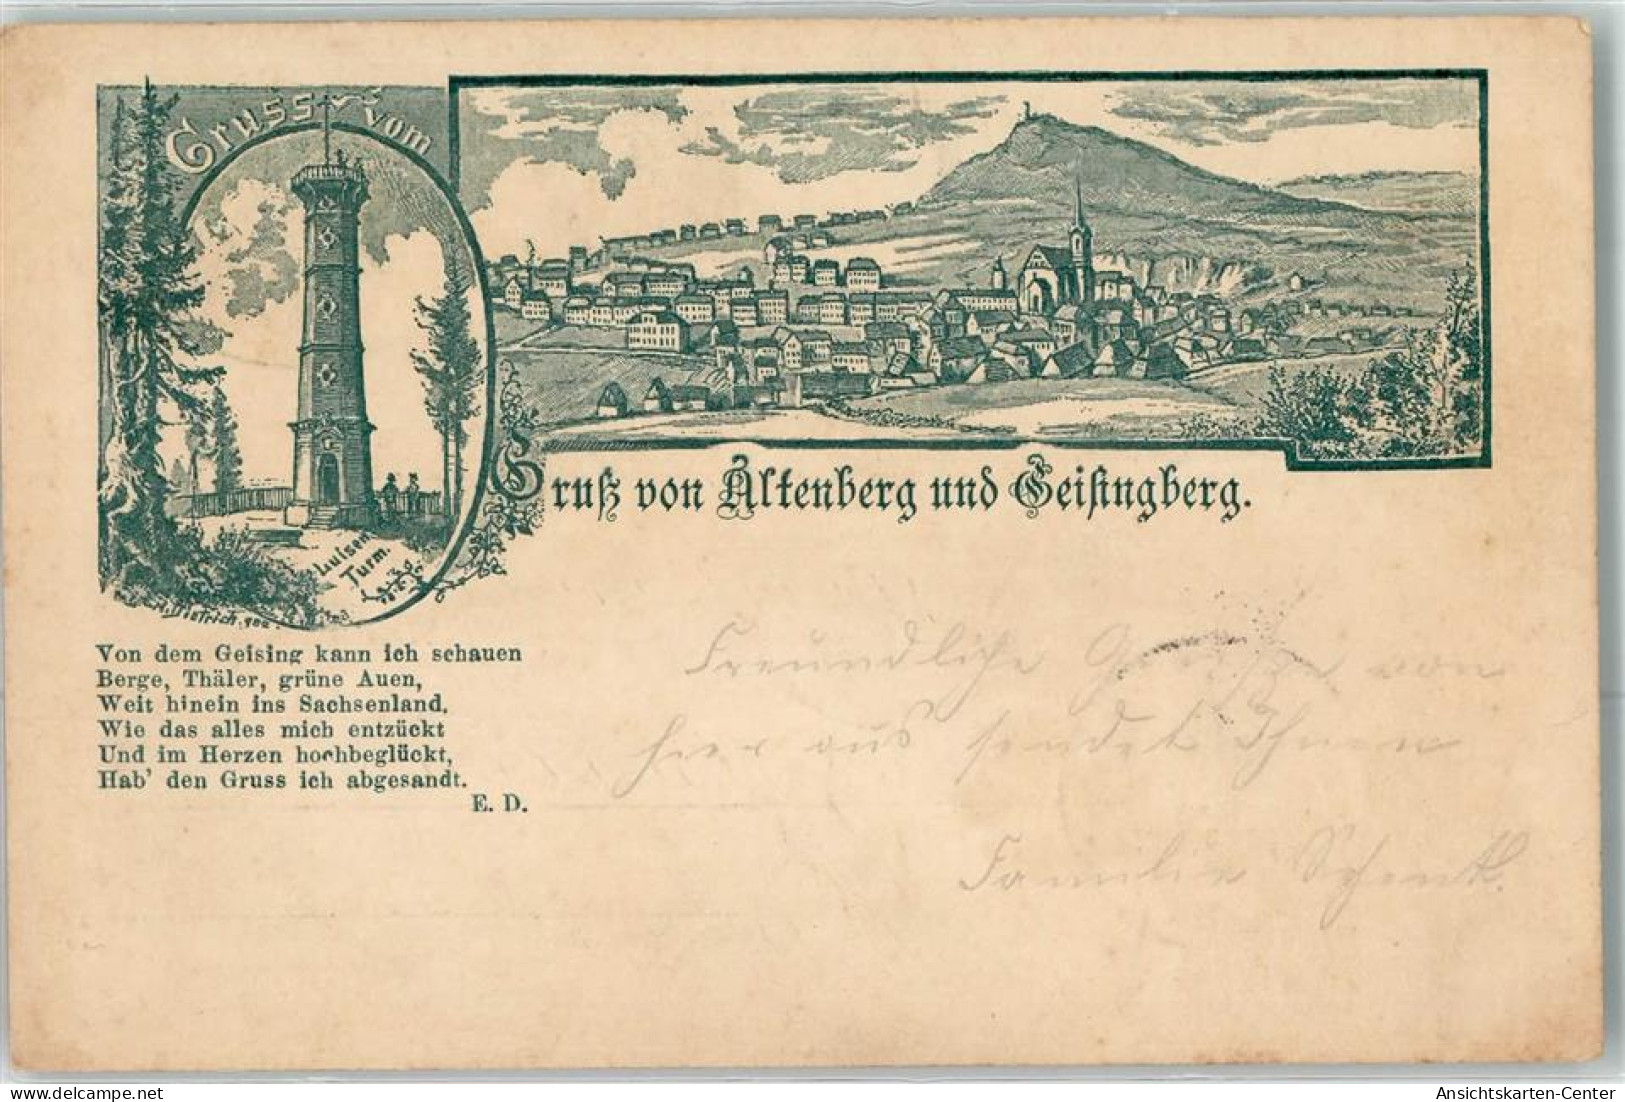 Gruss vom
Luisen
Turm.
Gruß von Altenberg und Geisingberg.
Von dem Geising kann ich schauen
Berge, Thäler, grüne Auen,
Weit hinein ins Sachsenland.
Wie das alles mich entzückt
Und im Herzen hochbeglückt,
Hab' den Gruss ich abgesandt.
E. D.
Freundliche Grüsse von
hier aus sendet Ihnen
Familie Schenk.
delcampe.net
Ansichtskarten-Center